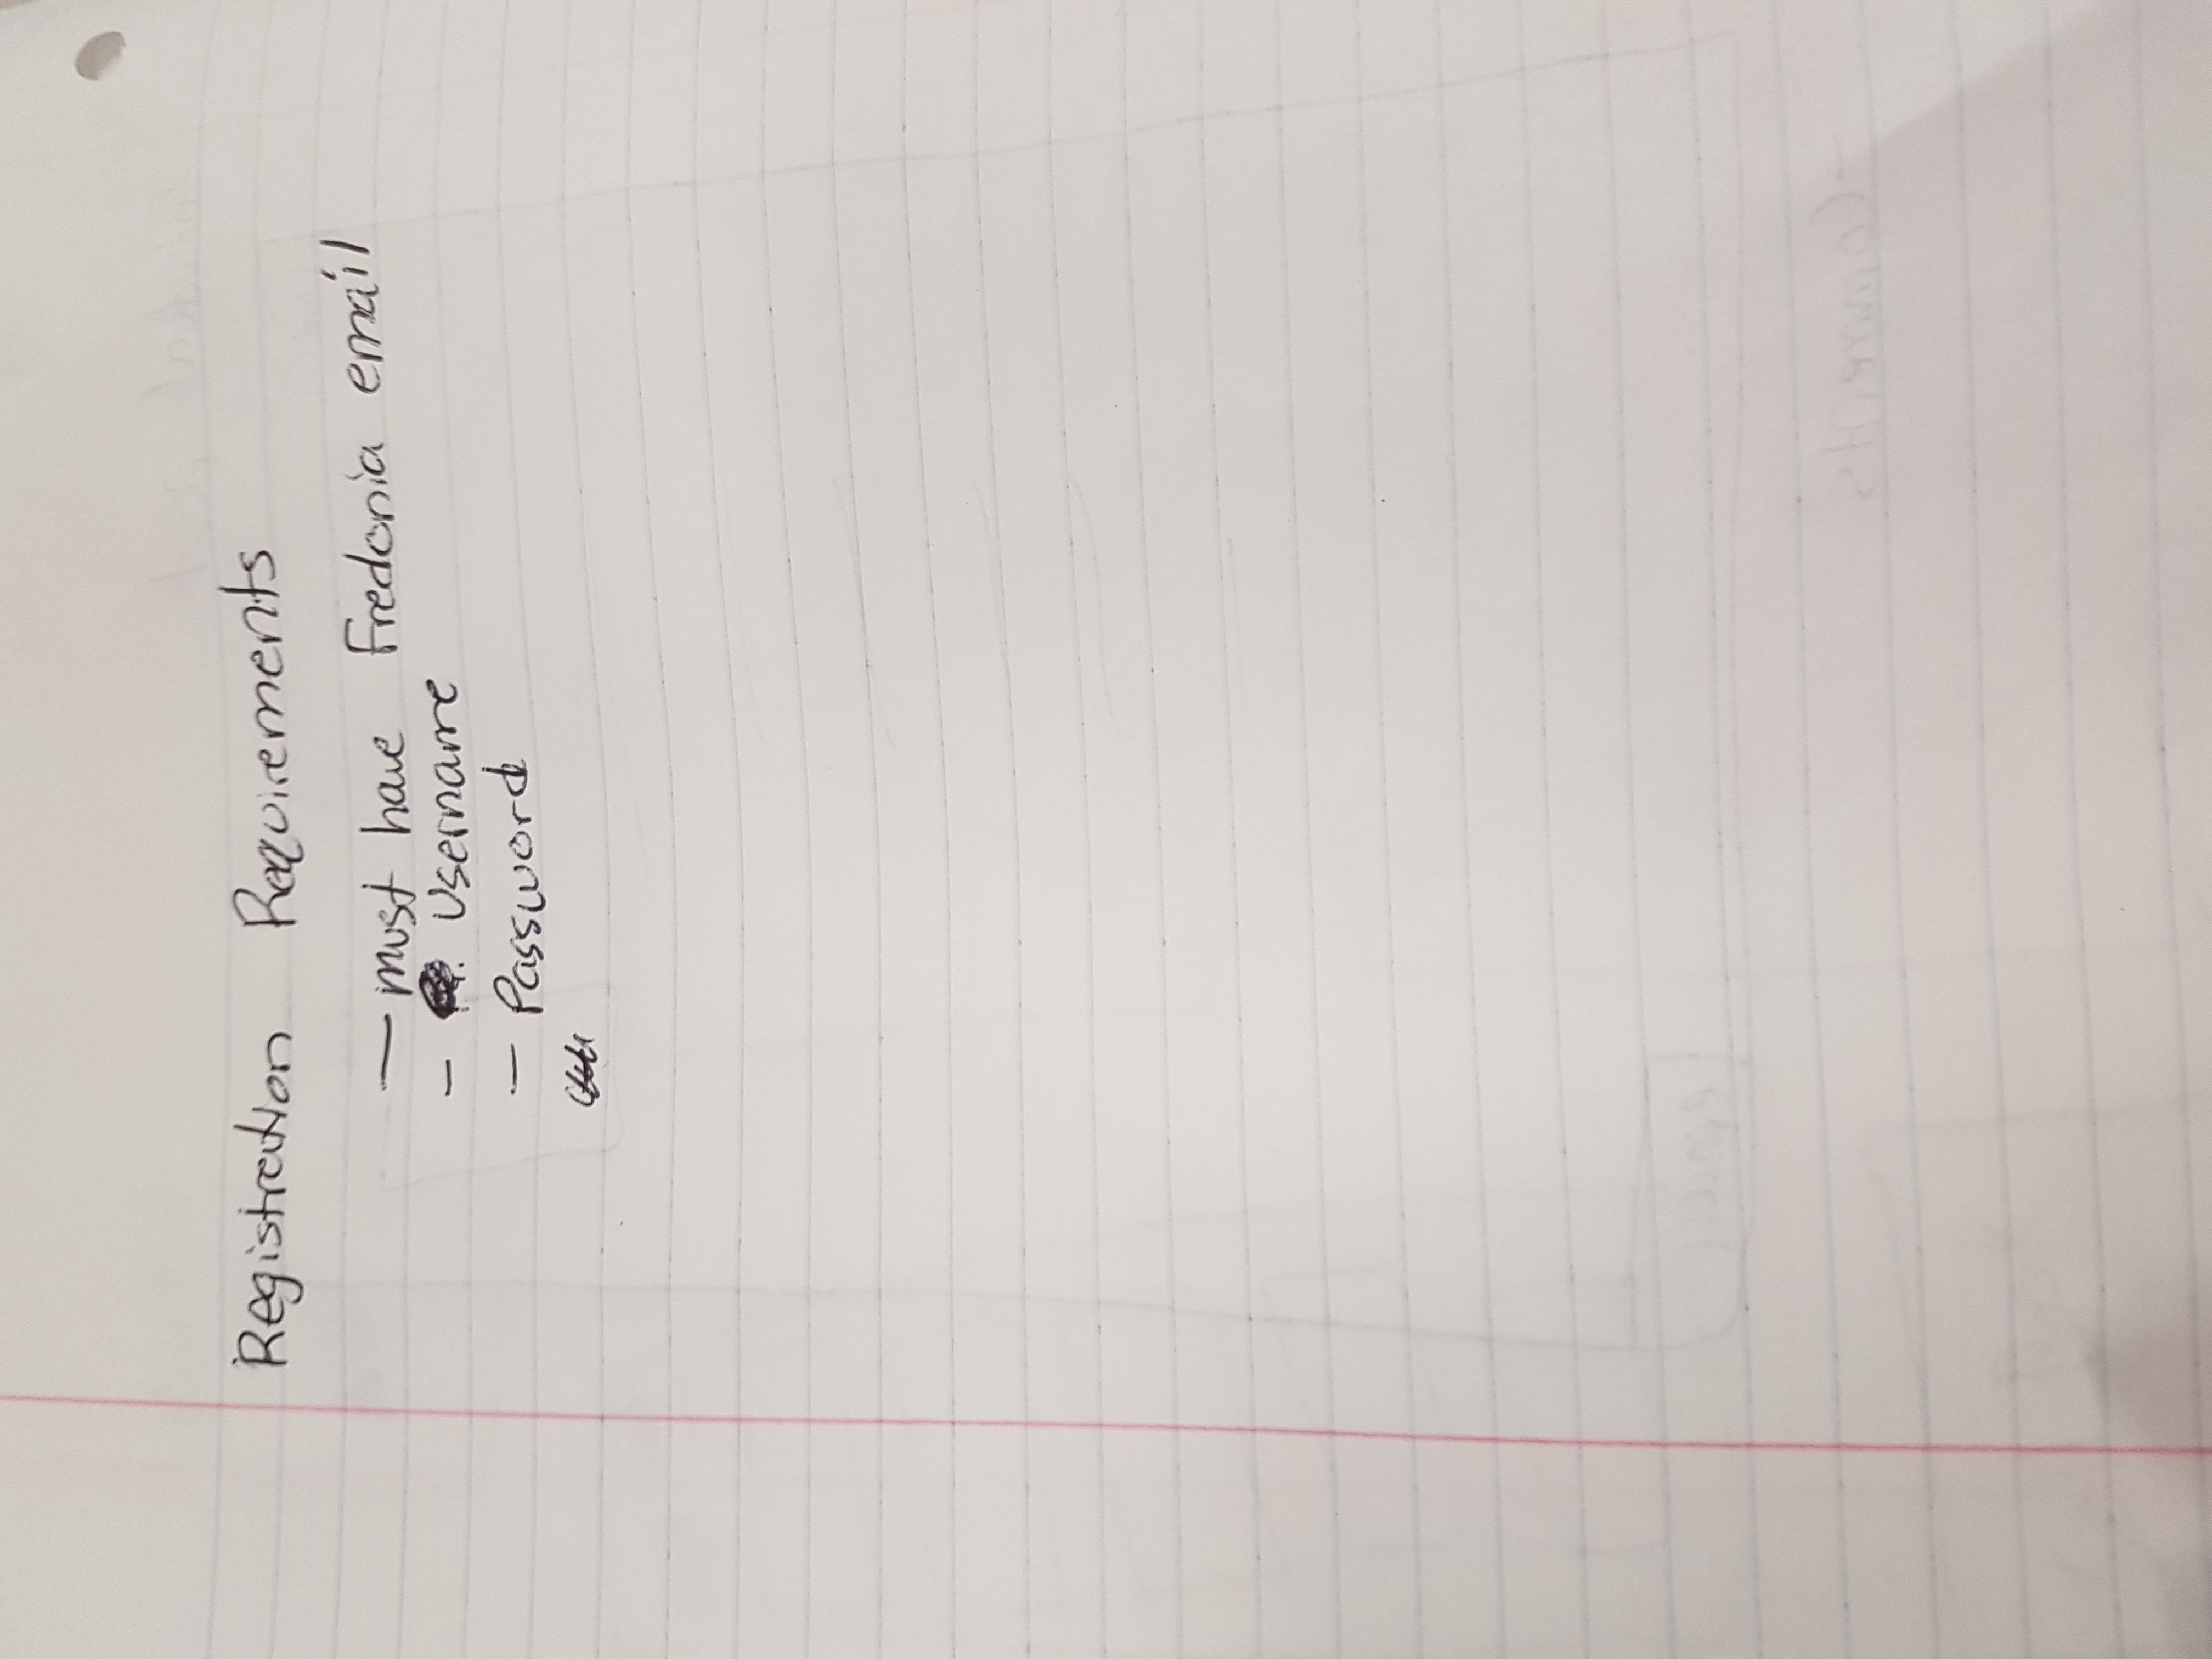 Registration Requirements
— must have Fredonia email
- Username
- Password